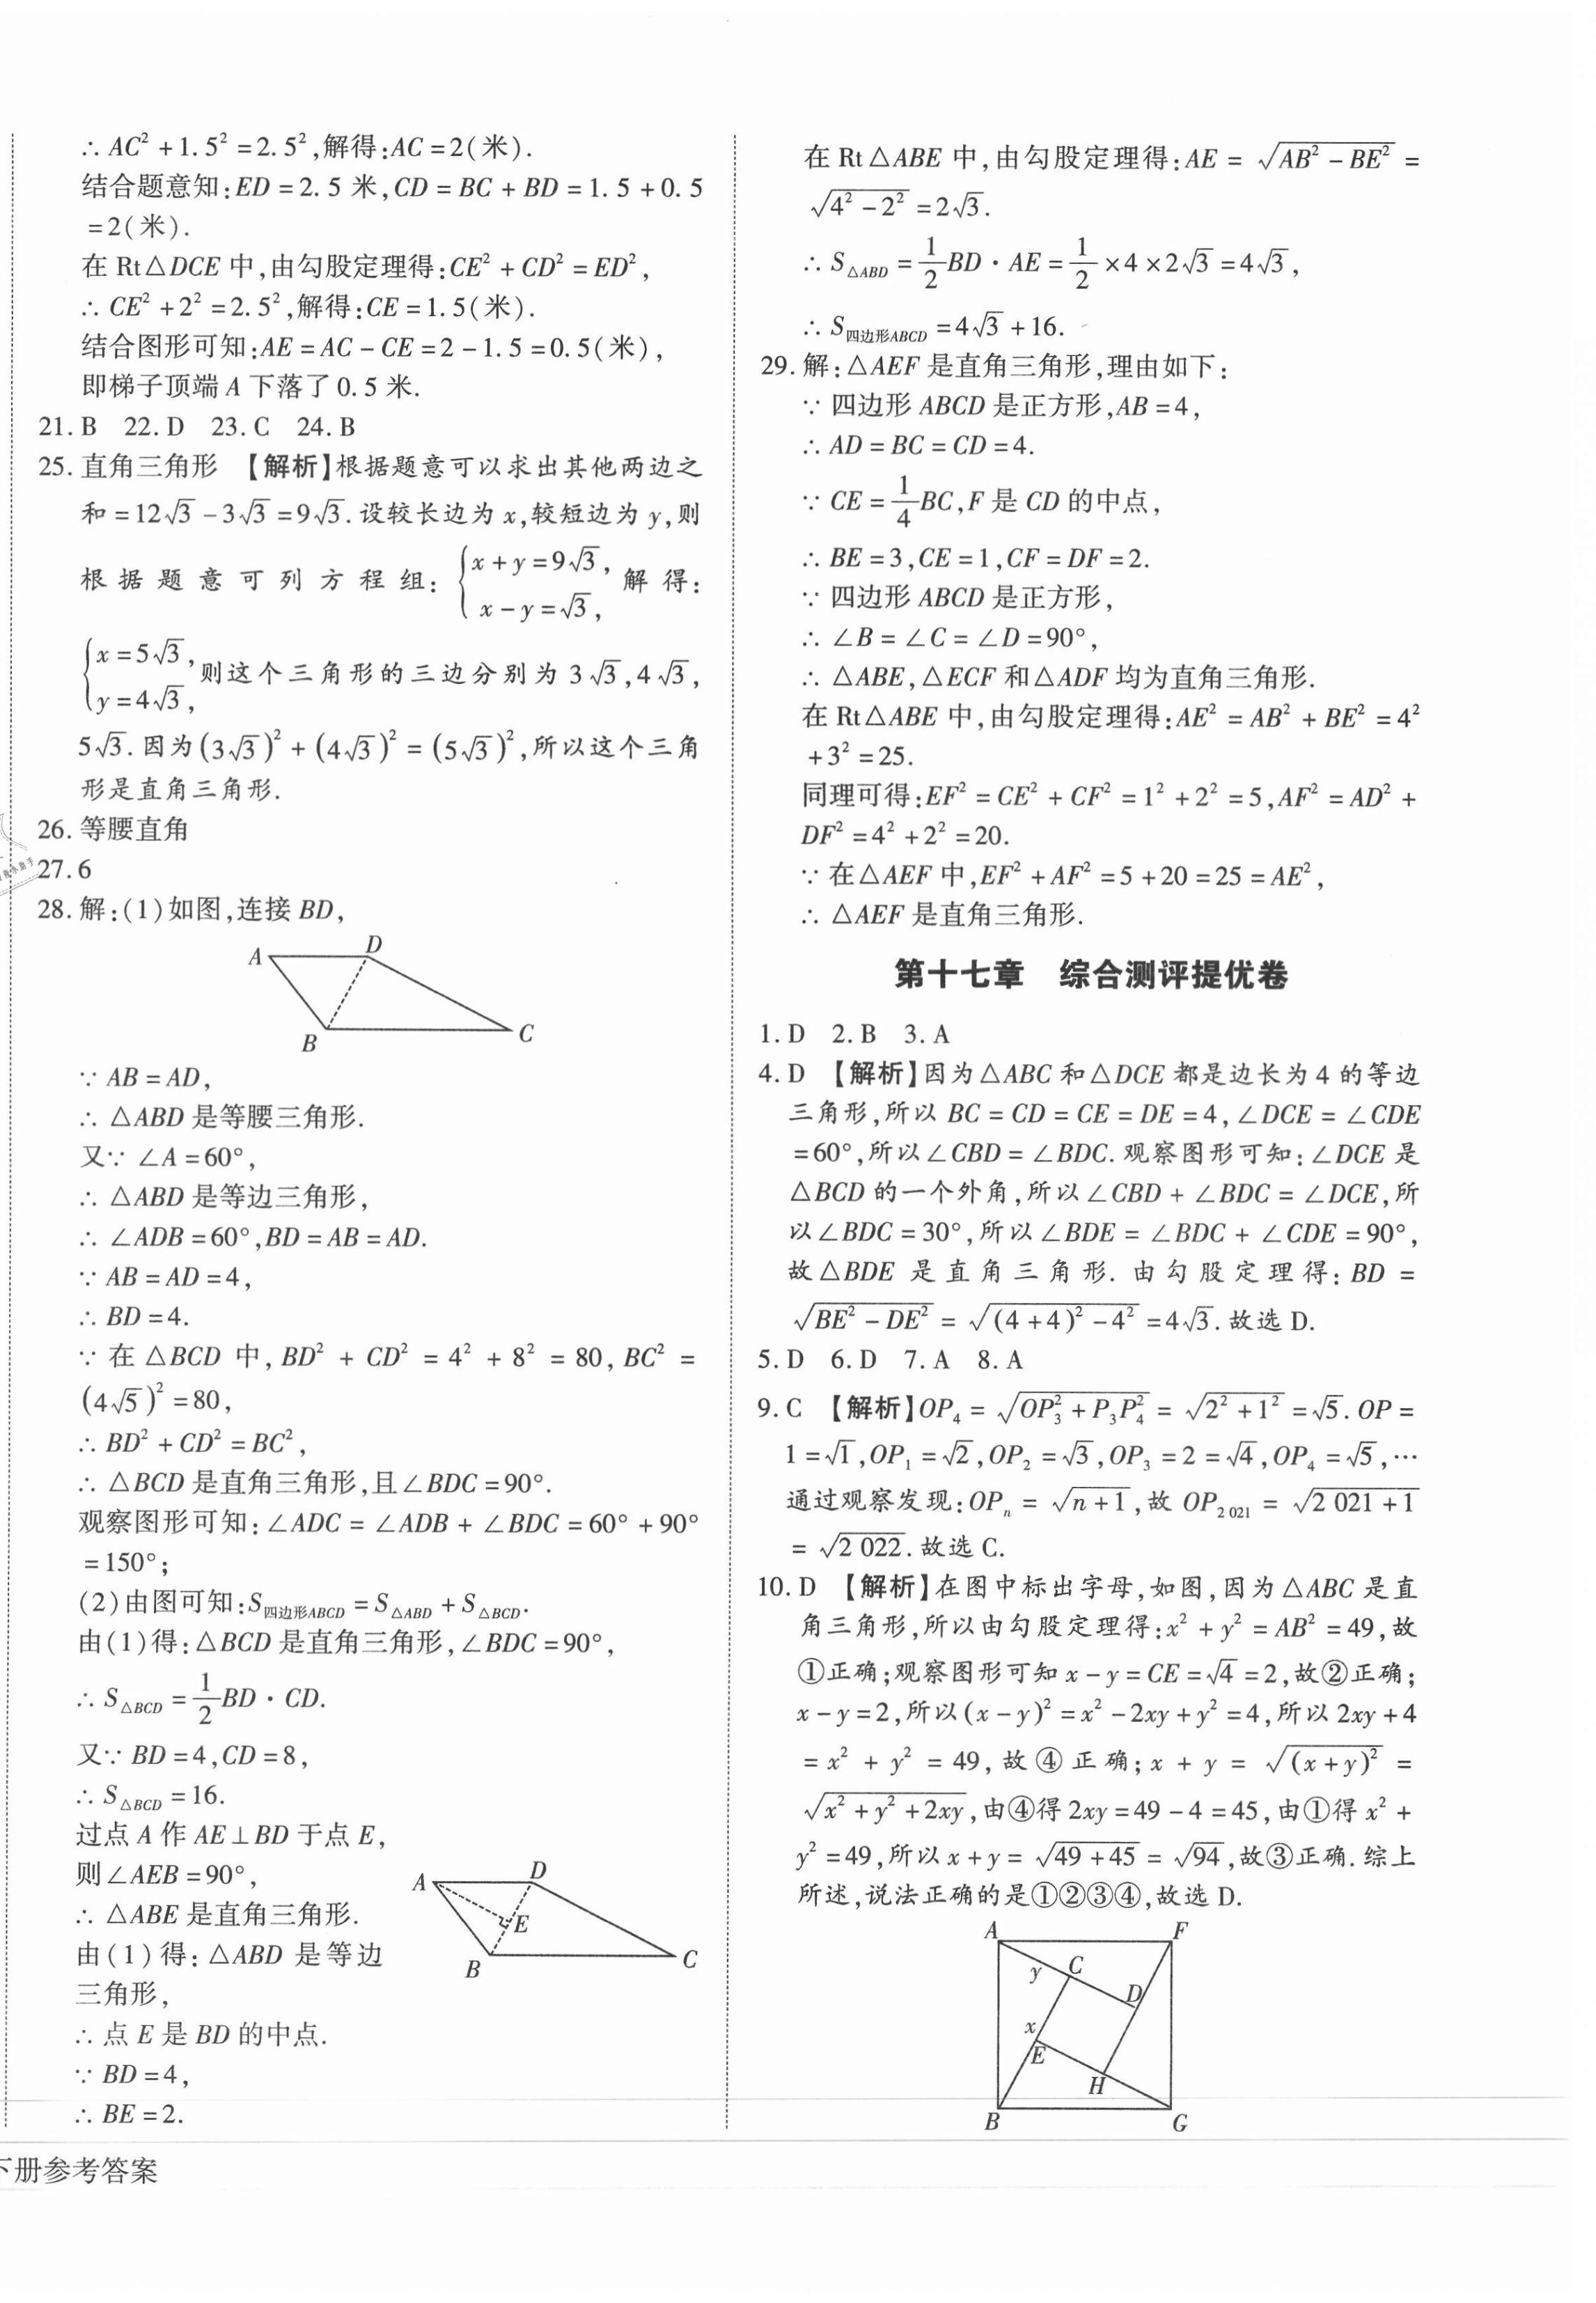 ∴ AC² + 1.5² = 2.5², 解得:AC = 2(米).
结合题意知:ED = 2.5 米, CD = BC + BD = 1.5 + 0.5
= 2(米).
在 Rt△DCE 中,由勾股定理得:CE² + CD² = ED²,
∴ CE² + 2² = 2.5², 解得:CE = 1.5(米).
结合图形可知:AE = AC − CE = 2 − 1.5 = 0.5(米),
即梯子顶端 A 下落了 0.5 米.
21. B 22. D 23. C 24. B
25. 直角三角形 【解析】根据题意可以求出其他两边之
和 = 12√3 − 3√3 = 9√3. 设较长边为 x,较短边为 y,则
根据题意可列方程组: {x + y = 9√3, x − y = √3, 解得:
{x = 5√3, y = 4√3, 则这个三角形的三边分别为 3√3, 4√3,
5√3. 因为 (3√3)² + (4√3)² = (5√3)², 所以这个三角
形是直角三角形.
26. 等腰直角
27. 6
28. 解:(1)如图,连接 BD,
A D
B C
∵ AB = AD,
∴ △ABD 是等腰三角形.
又∵ ∠A = 60°,
∴ △ABD 是等边三角形,
∴ ∠ADB = 60°, BD = AB = AD.
∵ AB = AD = 4,
∴ BD = 4.
∵ 在 △BCD 中, BD² + CD² = 4² + 8² = 80, BC² =
(4√5)² = 80,
∴ BD² + CD² = BC²,
∴ △BCD 是直角三角形,且∠BDC = 90°.
观察图形可知:∠ADC = ∠ADB + ∠BDC = 60° + 90°
= 150°;
(2)由图可知:S四边形ABCD = S△ABD + S△BCD.
由(1)得:△BCD 是直角三角形, ∠BDC = 90°,
∴ S△BCD = 1/2 BD · CD.
又∵ BD = 4, CD = 8,
∴ S△BCD = 16.
过点 A 作 AE⊥BD 于点 E,
则∠AEB = 90°,
∴ △ABE 是直角三角形.
由(1)得: △ABD 是等边
三角形,
A D
E
B C
∴ 点 E 是 BD 的中点.
∵ BD = 4,
∴ BE = 2.
下册参考答案
在 Rt△ABE 中,由勾股定理得:AE = √(AB² − BE²) =
√(4² − 2²) = 2√3.
∴ S△ABD = 1/2 BD · AE = 1/2 × 4 × 2√3 = 4√3,
∴ S四边形ABCD = 4√3 + 16.
29. 解:△AEF 是直角三角形,理由如下:
∵ 四边形 ABCD 是正方形, AB = 4,
∴ AD = BC = CD = 4.
∵ CE = 1/4 BC, F 是 CD 的中点,
∴ BE = 3, CE = 1, CF = DF = 2.
∵ 四边形 ABCD 是正方形,
∴ ∠B = ∠C = ∠D = 90°,
∴ △ABE, △ECF 和△ADF 均为直角三角形.
在 Rt△ABE 中,由勾股定理得:AE² = AB² + BE² = 4²
+ 3² = 25.
同理可得:EF² = CE² + CF² = 1² + 2² = 5, AF² = AD² +
DF² = 4² + 2² = 20.
∵ 在△AEF 中, EF² + AF² = 5 + 20 = 25 = AE²,
∴ △AEF 是直角三角形.
第十七章 综合测评提优卷
1. D 2. B 3. A
4. D 【解析】因为△ABC 和△DCE 都是边长为 4 的等边
三角形,所以 BC = CD = CE = DE = 4, ∠DCE = ∠CDE
= 60°, 所以∠CBD = ∠BDC. 观察图形可知:∠DCE 是
△BCD 的一个外角,所以∠CBD + ∠BDC = ∠DCE, 所
以∠BDC = 30°, 所以∠BDE = ∠BDC + ∠CDE = 90°,
故△BDE 是直角三角形. 由勾股定理得: BD =
√(BE² − DE²) = √((4 + 4)² − 4²) = 4√3. 故选 D.
5. D 6. D 7. A 8. A
9. C 【解析】OP₄ = √(OP₃² + P₃P₄²) = √(2² + 1²) = √5. OP =
1 = √1, OP₁ = √2, OP₂ = √3, OP₃ = 2 = √4, OP₄ = √5, …
通过观察发现:OPₙ = √(n + 1), 故 OP₂ ₀₂₁ = √(2 021 + 1)
= √(2 022). 故选 C.
10. D 【解析】在图中标出字母,如图,因为△ABC 是直
角三角形,所以由勾股定理得:x² + y² = AB² = 49, 故
①正确;观察图形可知 x − y = CE = √4 = 2, 故②正确;
x − y = 2, 所以 (x − y)² = x² − 2xy + y² = 4, 所以 2xy + 4
= x² + y² = 49, 故④正确; x + y = √((x + y)²) =
√(x² + y² + 2xy), 由④得 2xy = 49 − 4 = 45, 由①得 x² +
y² = 49, 所以 x + y = √(49 + 45) = √94, 故③正确. 综上
所述,说法正确的是①②③④,故选 D.
A F
y C
D
x
E
H
B G